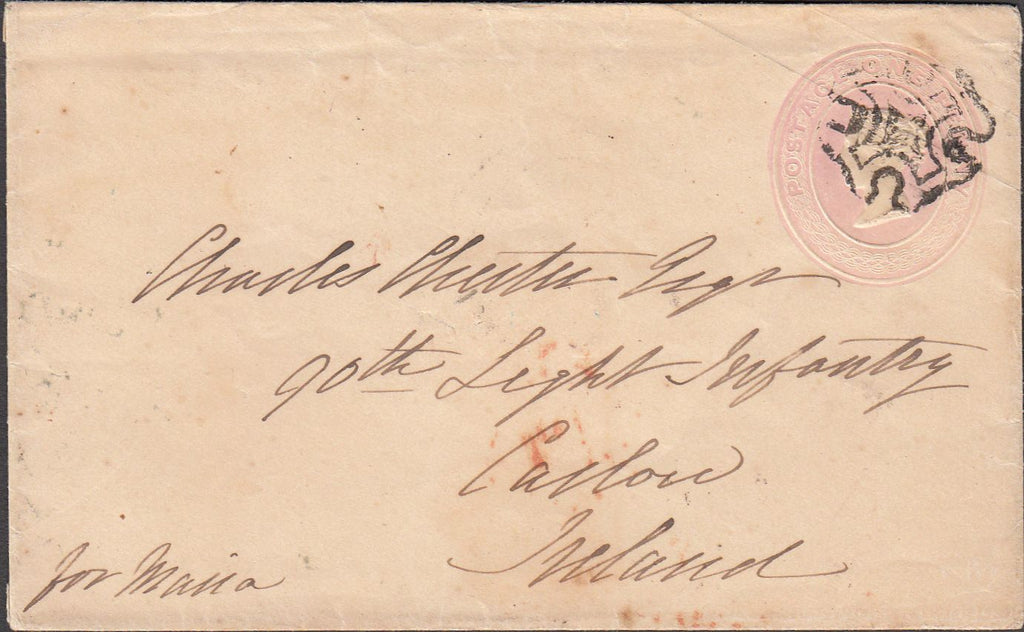 POSTAGE ONE PENNY
Charles Chester Esqr
90th Light Infantry
Carlow
Ireland
for Maria